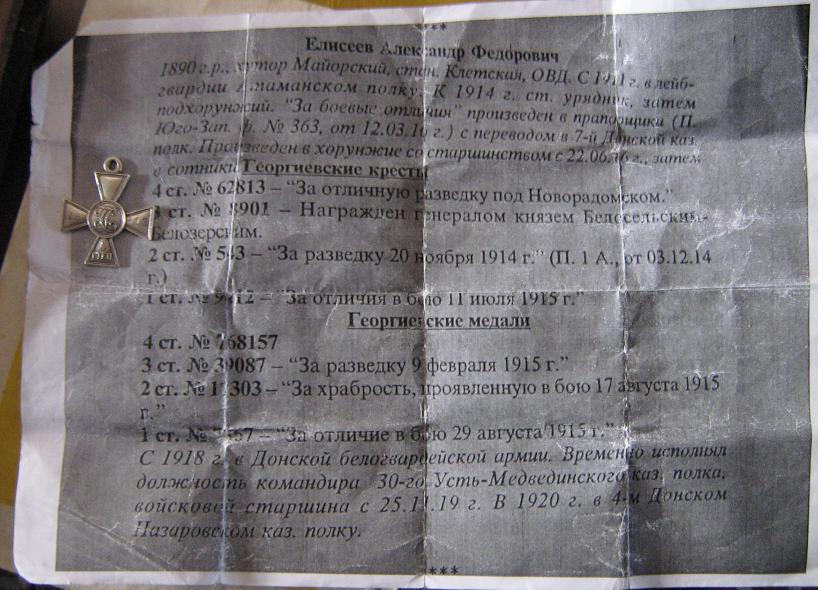 ***
Елисеев Александр Федорович
1890 г.р., хутор Майорский, стан. Клетская, ОВД. С г. в лейб-
гвардии Атаманском полку. К 1914 г. ст. урядник, затем
подхорунжий. "За боевые отличия" произведен в прапорщики (П.
Юго-Зап. ф. № 363, от 12.03.16 г.) с переводом в 7-й Донской каз.
полк. Произведен в хорунжие со старшинством с 22.06. г., затем
в сотники. Георгиевские кресты
4 ст. № 62813 – “За отличную разведку под Новорадомском.”
3 ст. № 8901 – Награжден генералом князем Белосельским-
Белозерским.
2 ст. № 543 – “За разведку 20 ноября 1914 г.” (П. 1 А., от 03.12.14
г.)
1 ст. № – “За отличия в бою 11 июля 1915 г.”
Георгиевские медали
4 ст. № 768157
3 ст. № 39087 – “За разведку 9 февраля 1915 г.”
2 ст. № – “За храбрость, проявленную в бою 17 августа 1915
г.”
1 ст. № – “За отличие в бою 29 августа 1915 г.”
С 1918 г. в Донской белогвардейской армии. Временно исполнял
должность командира 30-го Усть-Медведиского каз. полка,
войсковой старшина с 25.11.19 г. В 1920 г. в 4-м Донском
Назаровском каз. полку.
***